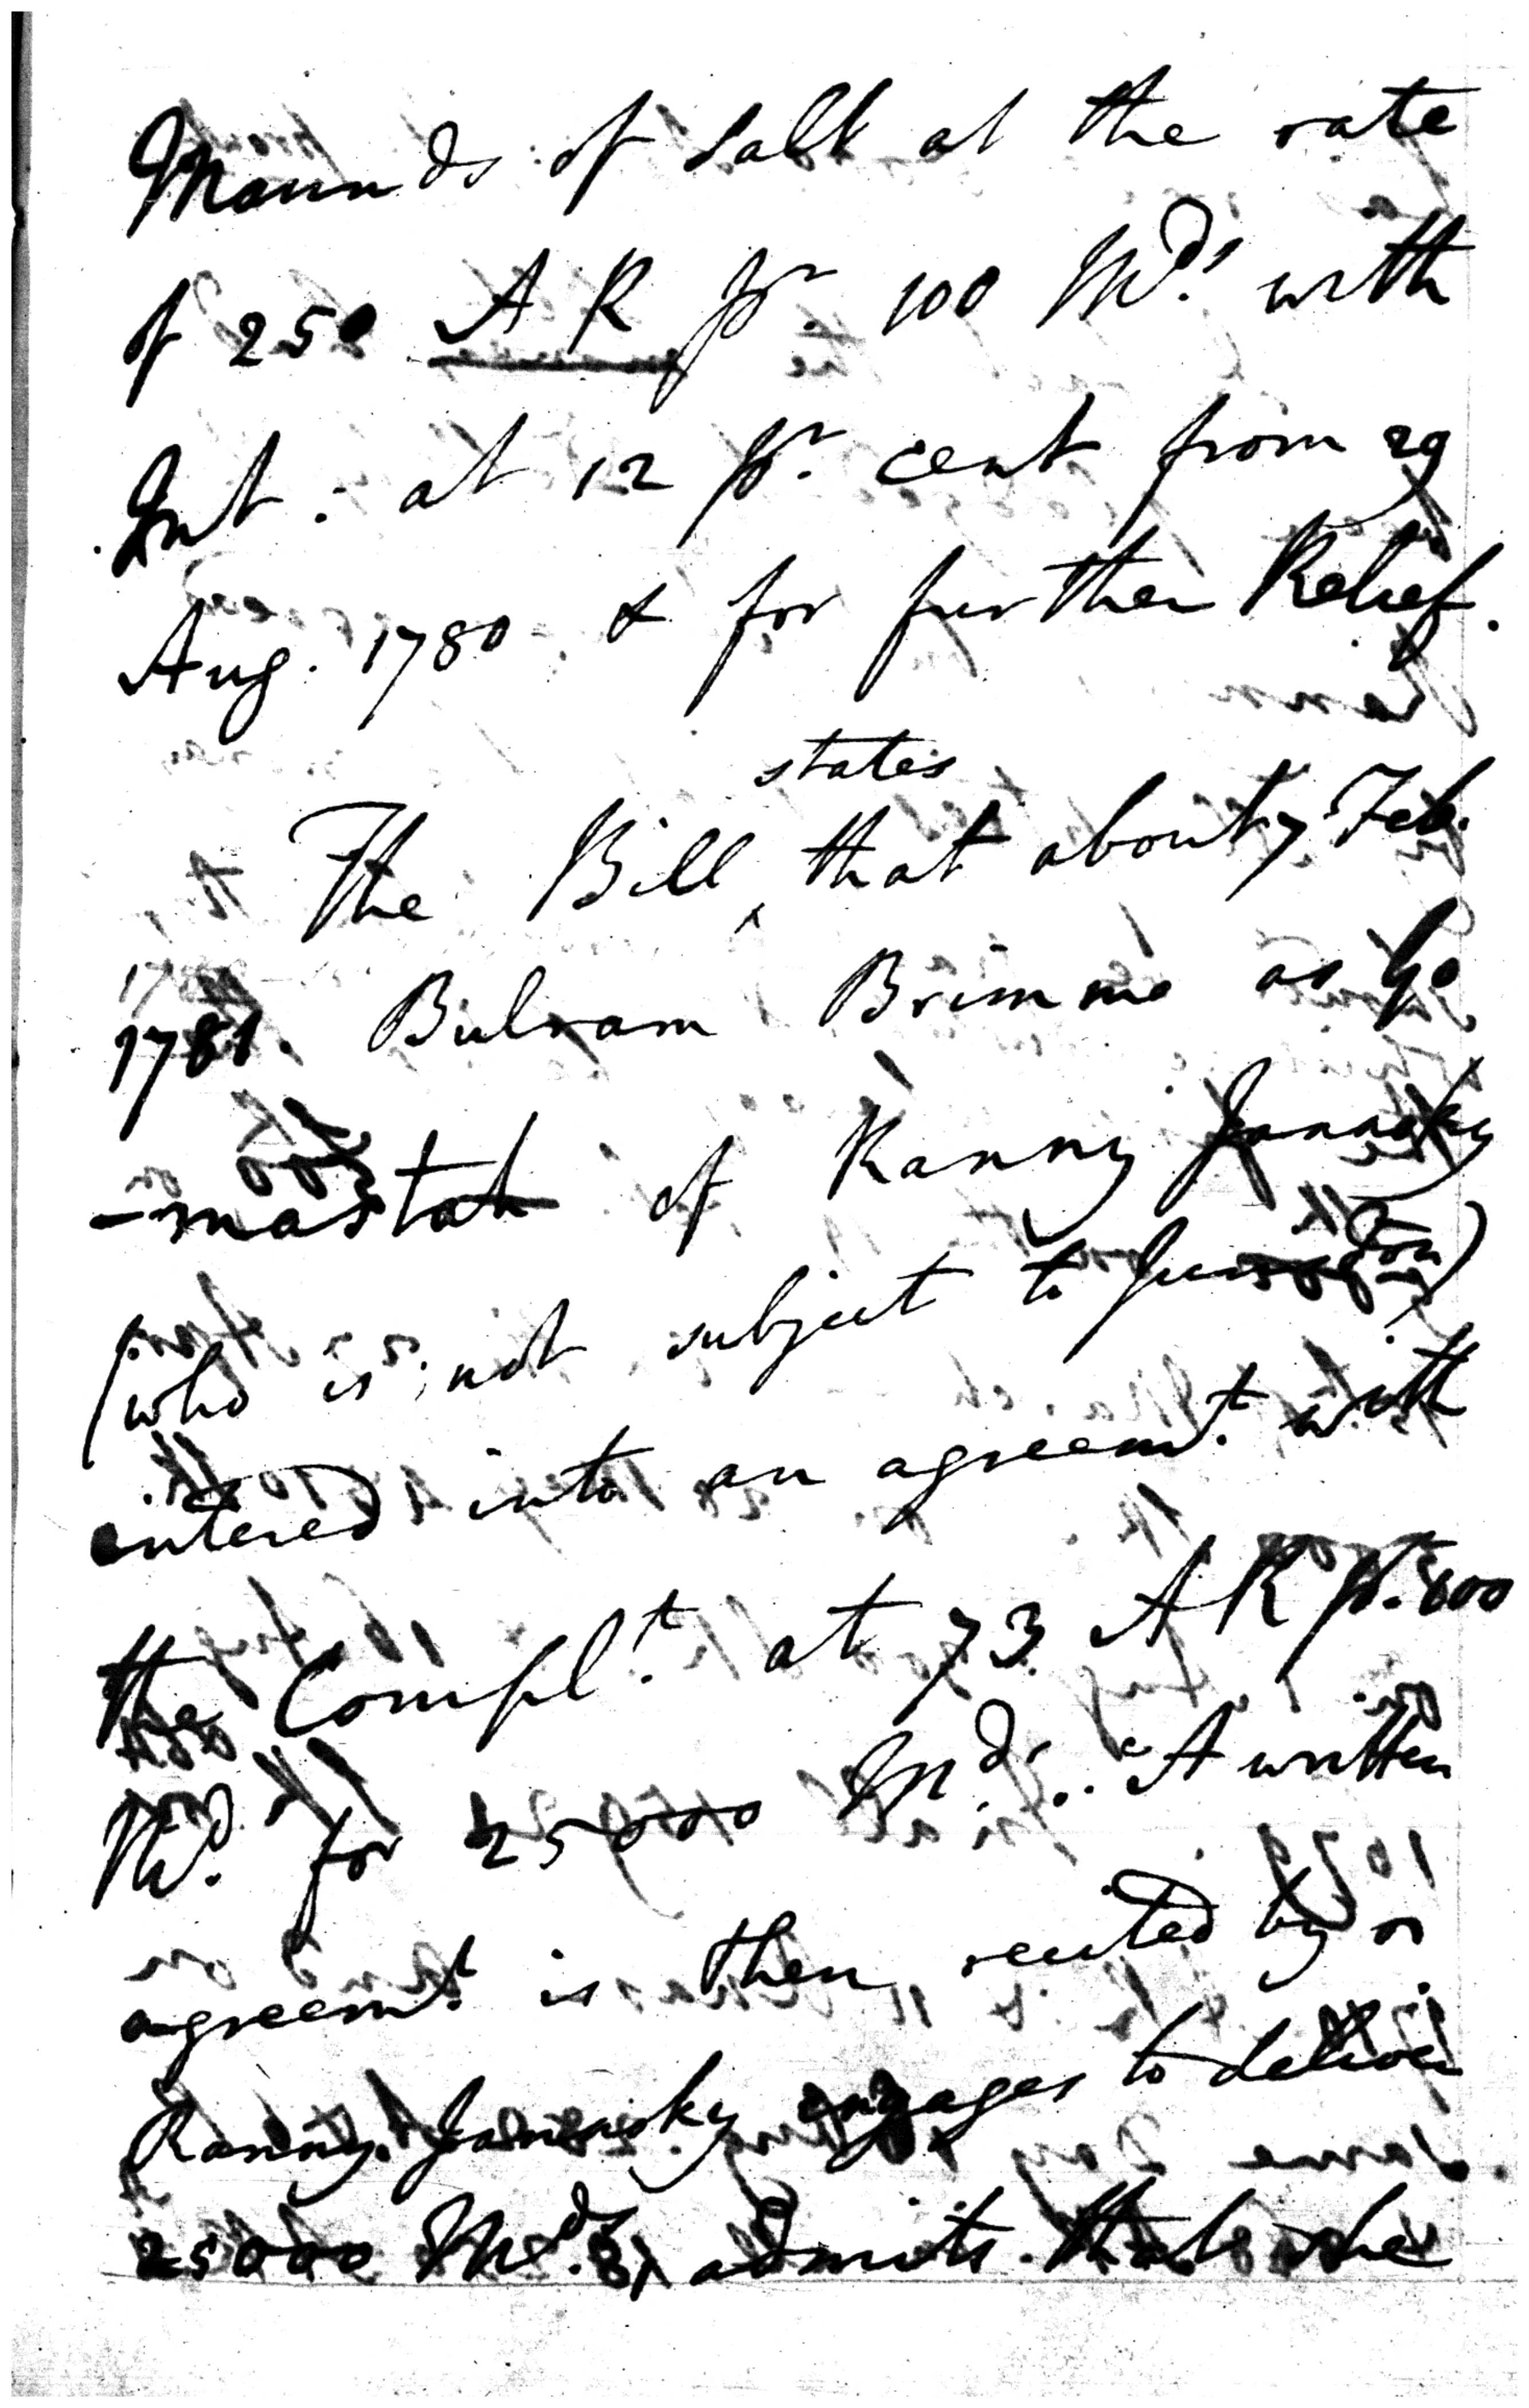 Maunds of Salt at the rate
of 250 A R pr. 100 Mds. with
Int. at 12 pr. cent from 29
Aug. 1780 & for further Relief.
states
The Bill ^ that about 7 Feb.
1781. Bulram Brimme as Go
-mastah of Ranny Janasky
(who is not subject to
entered into an agreemt. with
the Complt. at 73 A R pr. 100
Md. for 25000 Mds. A written
agreemt. is then recited by
Ranny Janusky engages to deliver
25000 Mds. & admits that she